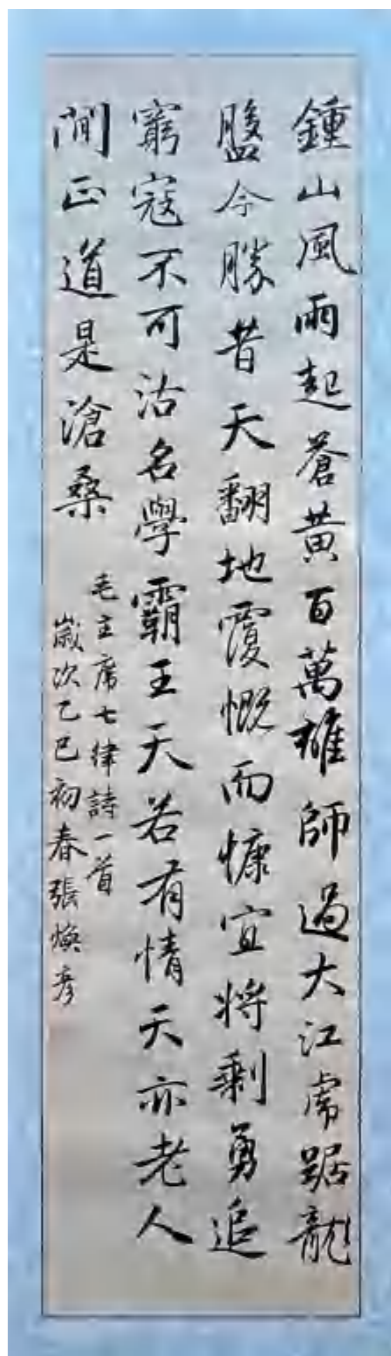 鍾山風雨起蒼黃百萬雄師過大江虎踞龍
盤今勝昔天翻地覆慨而慷宜將剩勇追
窮寇不可沽名學霸王天若有情天亦老人
間正道是滄桑
毛主席七律詩一首
歲次乙巳初春張煥彥